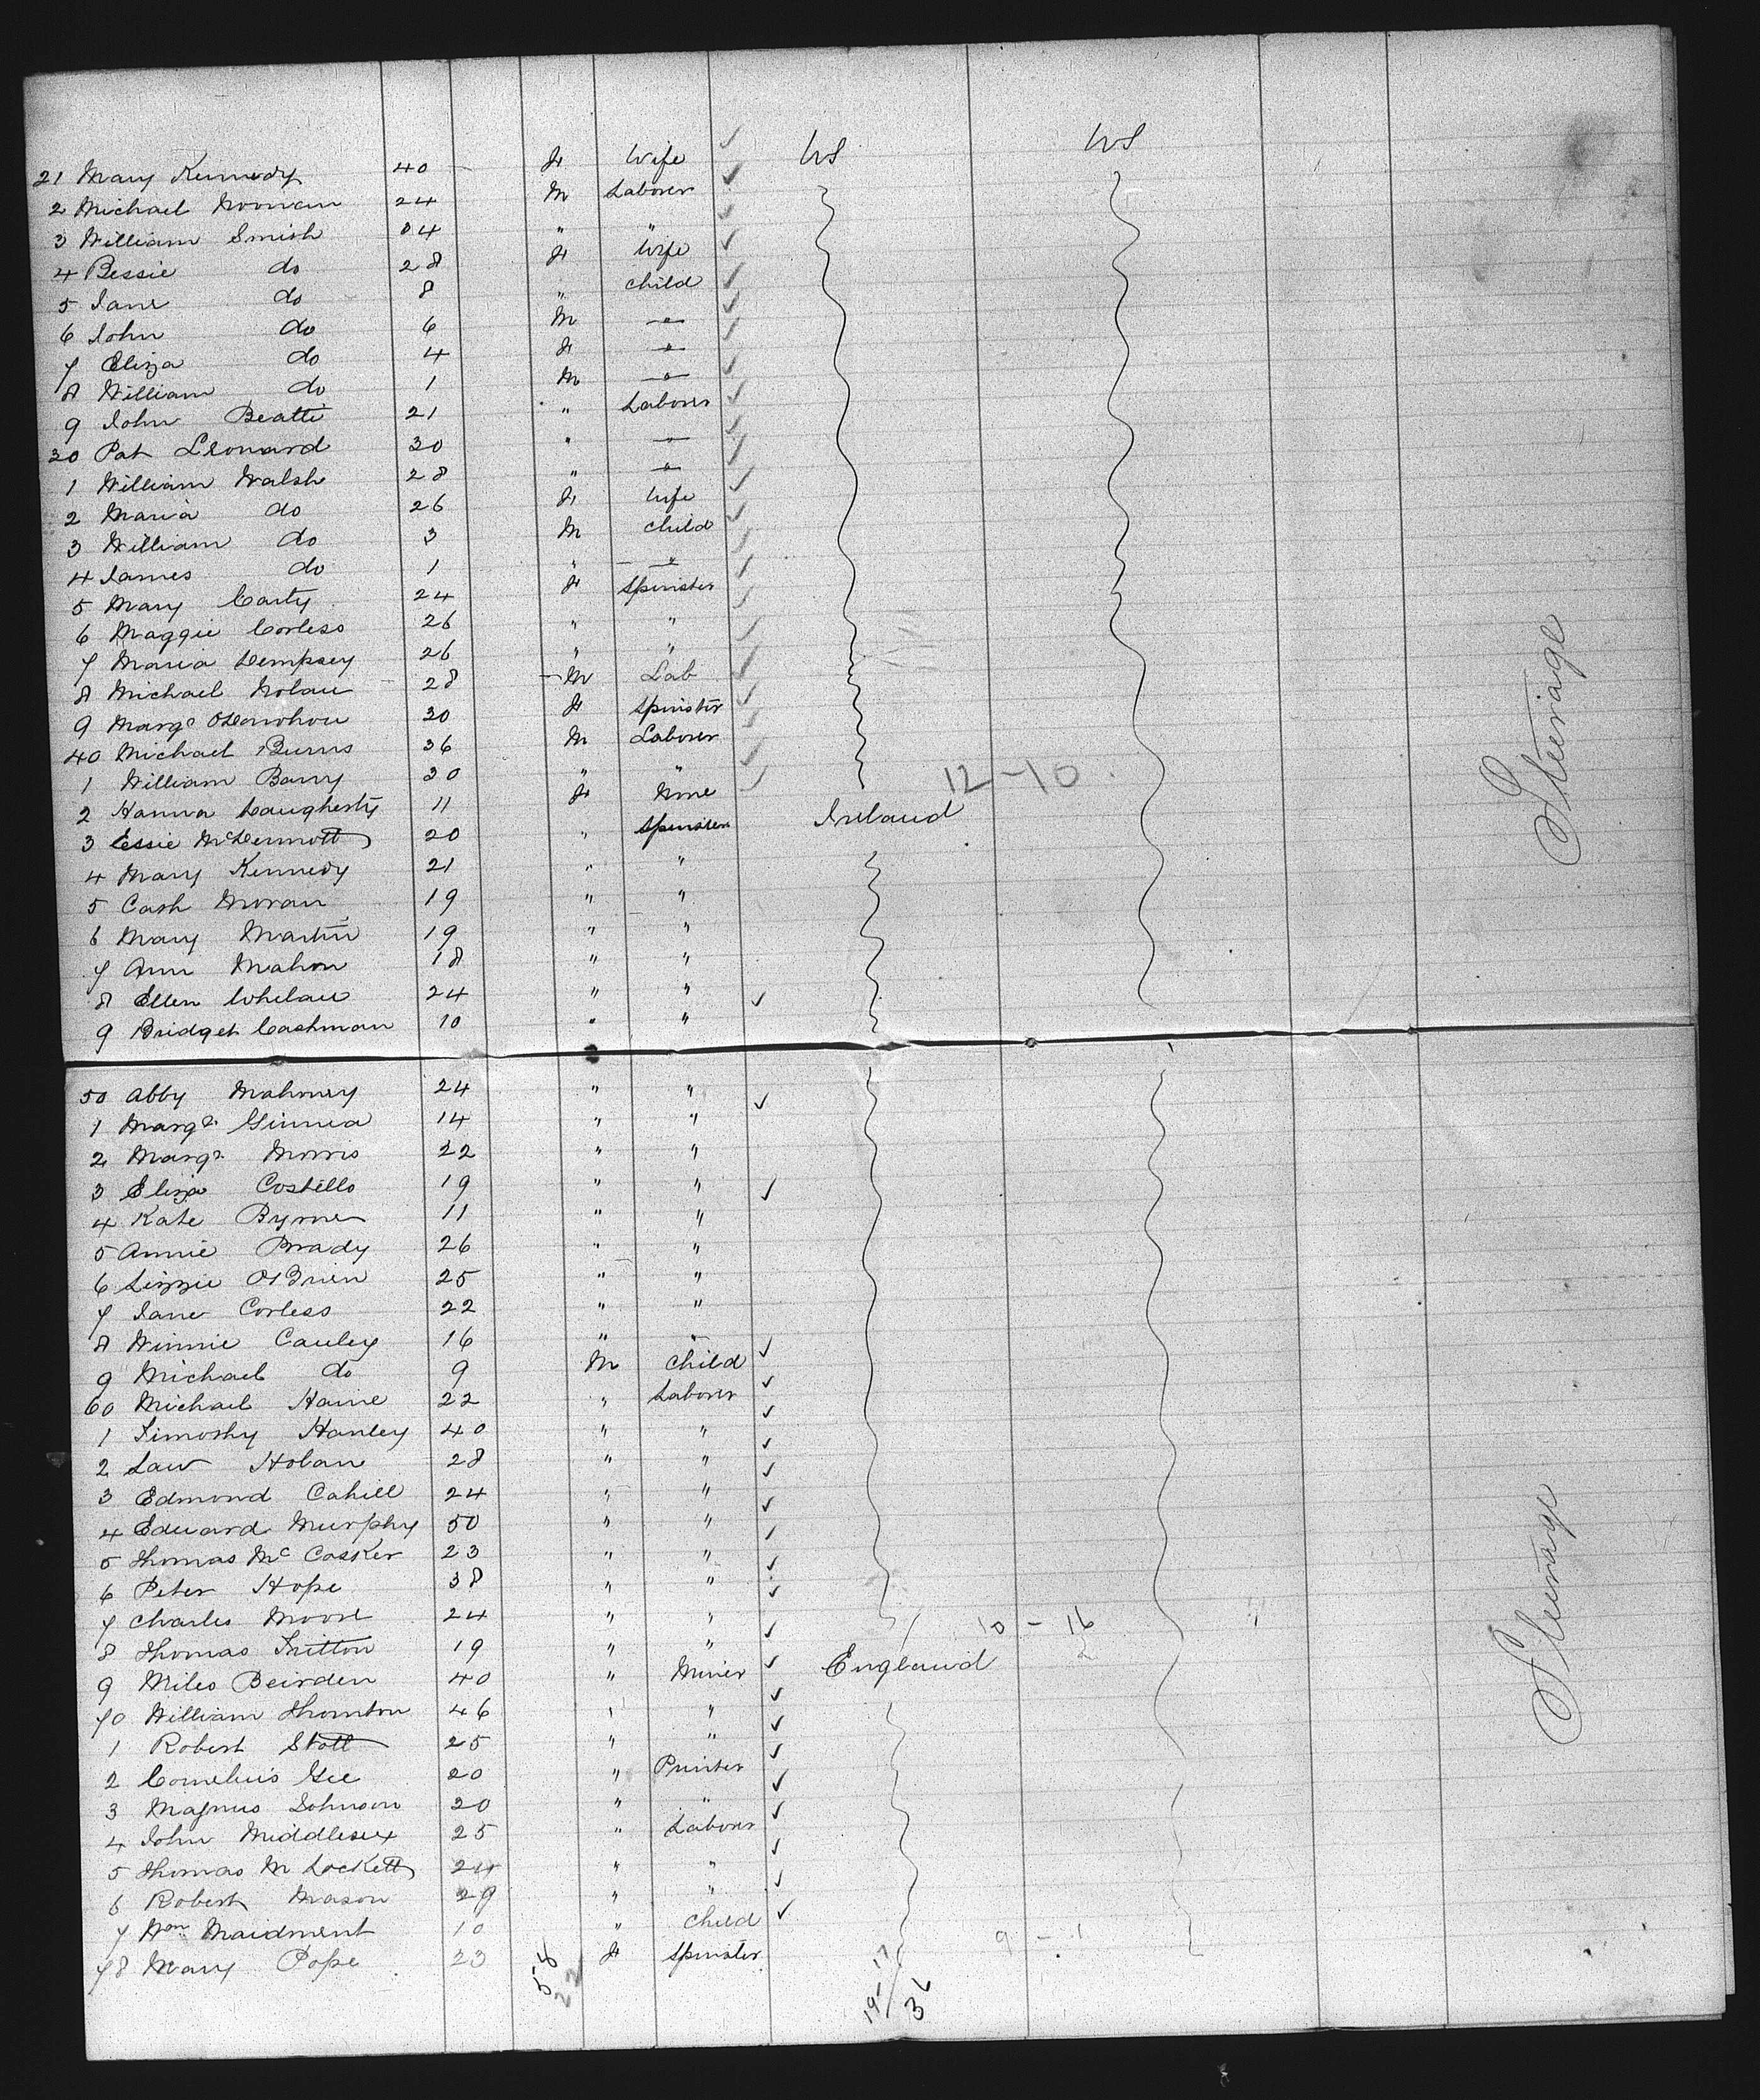 21 Mary Kennedy 40 F Wife US US
2 Michael Noonan 24 M Laborer
3 William Smith 34 " "
4 Bessie do 28 F Wife
5 Jane do 8 " child
6 John do 6 M "
7 Eliza do 4 F "
8 William do 1 M "
9 John Beatti 21 " Laborer
30 Pat Leonard 30 " "
1 William Walsh 28 " "
2 Maria do 26 F Wife
3 William do 3 M child
4 James do 1 " "
5 Mary Carty 24 F Spinster
6 Maggie Corless 26 " "
7 Maria Dempsey 26 " "
8 Michael Nolan 28 M Lab
9 Margt 30 F Spinster
40 Michael Burns 36 M Laborer
1 William Barry 30 " "
2 Hanna Daugherty 11 F None 12-10
3 Essie McDermott 20 " Spinster Ireland
4 Mary Kennedy 21 " "
5 Cash Moran 19 " "
6 Mary Martin 19 " "
7 Ann Mahon 18 " "
8 Ellen Whelan 24 " "
9 Bridget Cashman 10 " "
Steerage
50 Abby Mahoney 24 " "
1 Margt Ginnea 14 " "
2 Margt Morris 22 " "
3 Eliza Costello 19 " "
4 Kate Byrne 11 " "
5 Annie Brady 26 " "
6 Lizzie O'Brien 25 " "
7 Jane Corless 22 " "
8 Winnie Cauley 16 " "
9 Michael do 9 M child
60 Michael Haine 22 " Laborer
1 Timothy Hanley 40 " "
2 Law Hoban 28 " "
3 Edmond Cahill 24 " "
4 Edward Murphy 50 " "
5 Thomas McCosker 23 " "
6 Peter Hope 38 " "
7 Charles Moore 24 " "
8 Thomas Tritton 19 " " 10-16
9 Miles Beirden 40 " Miner England
70 William Thornton 46 " "
1 Robert Stott 25 " "
2 Cornelius Gee 20 " Printer
3 Magnus Johnson 20 " "
4 John Middlesex 25 " Laborer
5 Thomas M Lockett 24 " "
6 Robert Mason 29 " "
7 Wm Maidment 10 " child
78 Mary Pope 23 F Spinster 9-1
Steerage
58
22
19 17
36